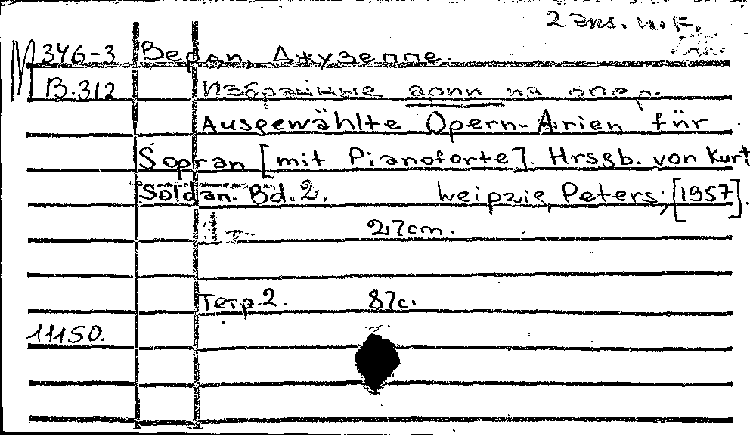 2 Экз. н. F.
М 346-3 Верди, Джузеппе.
В.312 Избранные арии из опер.
Ausgewählte Opern-Arien für
Sopran [mit Pianoforte]. Hrsgb. von Kurt
Soldan. Bd. 2. Leipzig, Peters, [1957].
27cm.
Тетр. 2. 87с.
11150.